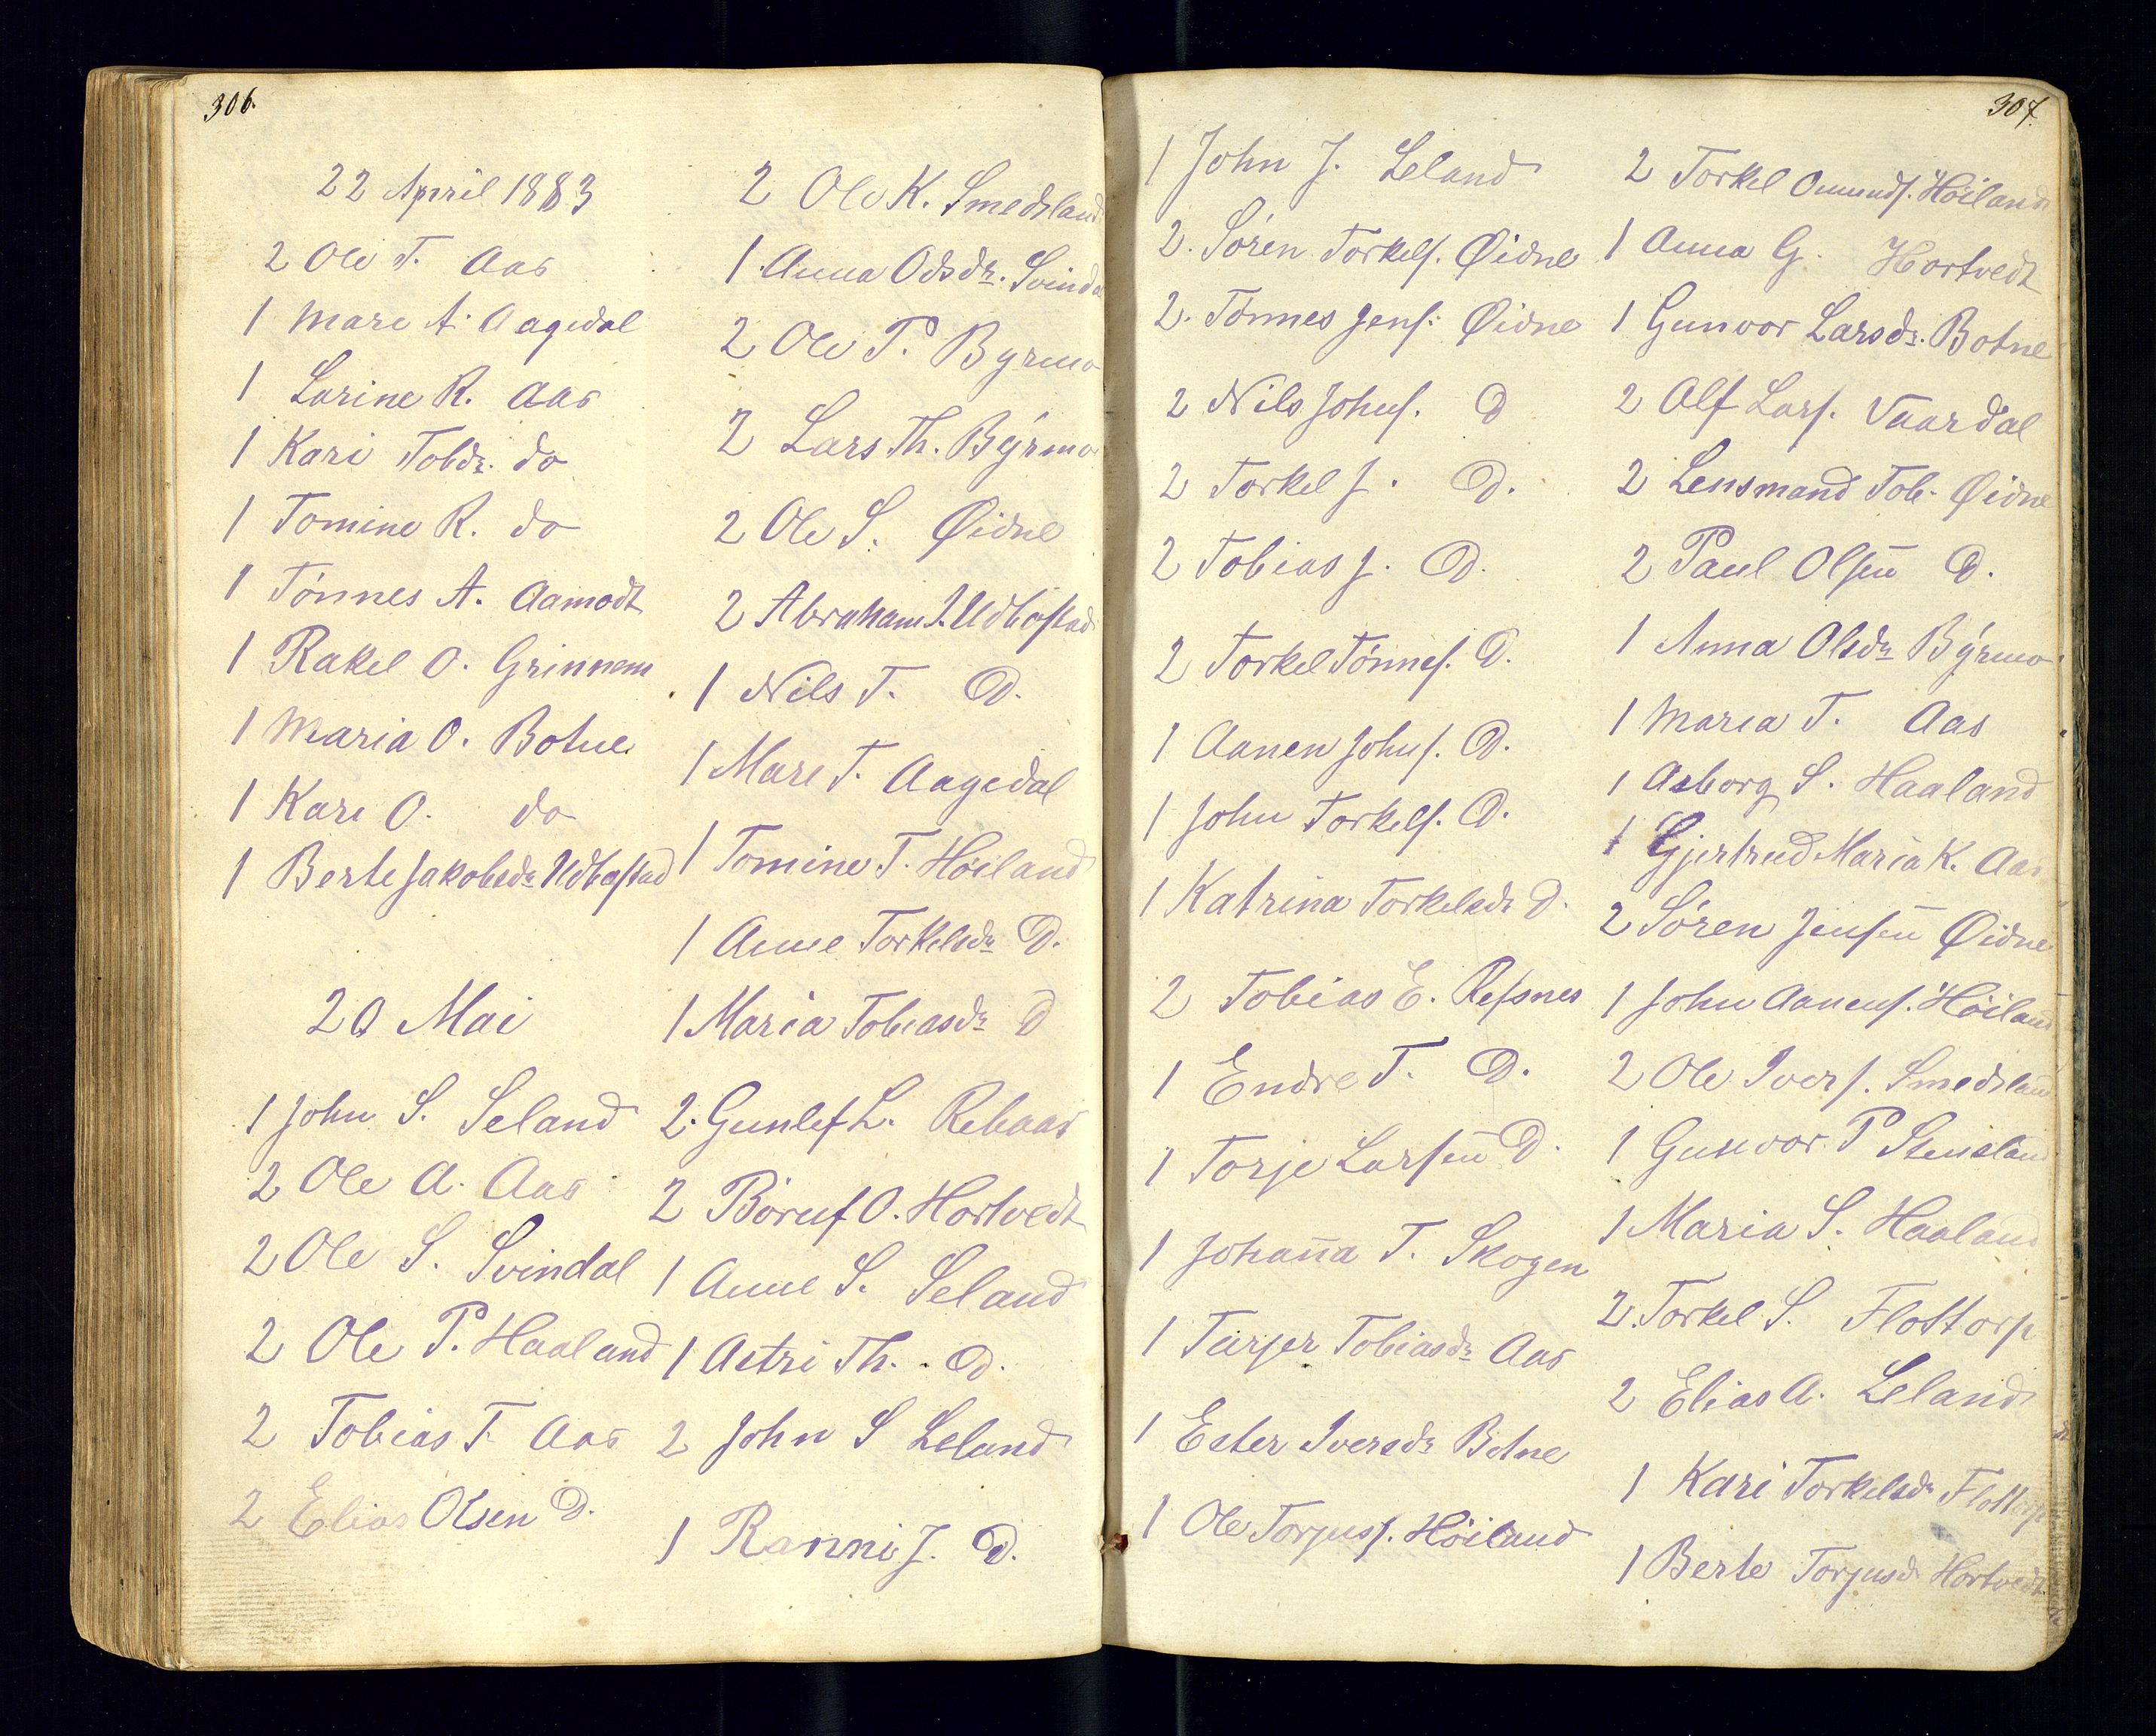 306.
22 April 1883
2 Ole T. Aas
1 Mari A. Aagedal
1 Larine R. Aas
1 Kari Tobdr. do
1 Tomine R. do
1 Tönnes A. Aamodt
1 Rakel O. Grinnem
1 Maria O. Botne
1 Kari O. do
1 Berte Jakobsdr Udbøstad
20 Mai
1 John S. Seland
2 Ole A. Aas
2 Ole S. Svindal
2 Ole P. Haaland
2 Tobias T. Aas
2 Elias Olsen D.
2 Ole K. Smedsland
1 Anna Odsdr. Svinda
2 Ole P. Byrmo
2 Lars Th. Byrmo
2 Ole S. Øidne
2 Abraham J. Udbøstad
1 Nils T. D.
1 Mari T. Aagedal
1 Tomine T. Høiland
1 Anne Torkelsdr D.
1 Maria Tobiasdr D
2. Gunlef L. Rebaas
2 Böruf O. Hortvedt
1 Anne S. Seland
1 Astri Th. D.
2 John S Leland
1 Ranni J. D.
307.
1 John J. Leland
2. Sören Torkels. Øidne
2. Tönnes Jens. Øidne
2 Nils Johns. D
2 Torkel J. D.
2 Tobias J. D.
2 Torkel Tönnes. D.
1 Aanen Johns. D.
1 John Torkels. D.
1 Katrina Torkelsdr D.
2 Tobias E. Refsnes
1 Endre T. D.
1 Torje Larsen D.
1 Johan̄a T. Skogen
1 Tarjer Tobiasdr Aas
1 Ester Iversdr Botne
1 Ole Torjuss. Höiland
2 Torkel Omunds. Höiland
1 Anna G. Hortvedt
1 Gunvor Larsdr. Botne
2 Alf Lars. Vaardal
2 Lensmand Tob. Øidne
2 Paul Olsen D.
1 Anna Olsdr Byrmo
1 Maria T. Aas
1 Asborg S. Haaland
1 Gjertrud Maria K. Aas
2 Sören Jensen Øidne
1 John Aanens. Höiland
2 Ole Ivers. Smedsland
1 Gunvor P Stensland
1 Maria S. Haaland
2. Torkel S. Flottorp
2 Elias A. Leland
1 Kari Torkelsdr Flottorp
1 Berte Torjusdr Hortvedt